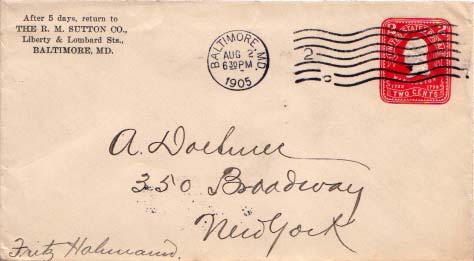 After 5 days, return to
THE R. M. SUTTON CO.,
Liberty & Lombard Sts.,
BALTIMORE, MD.
BALTIMORE, MD.
AUG 2
6-30 PM
1905
2
2 UNITED STATES 2
TWO CENTS
350 Broadway
New York
Fritz Hohmann.